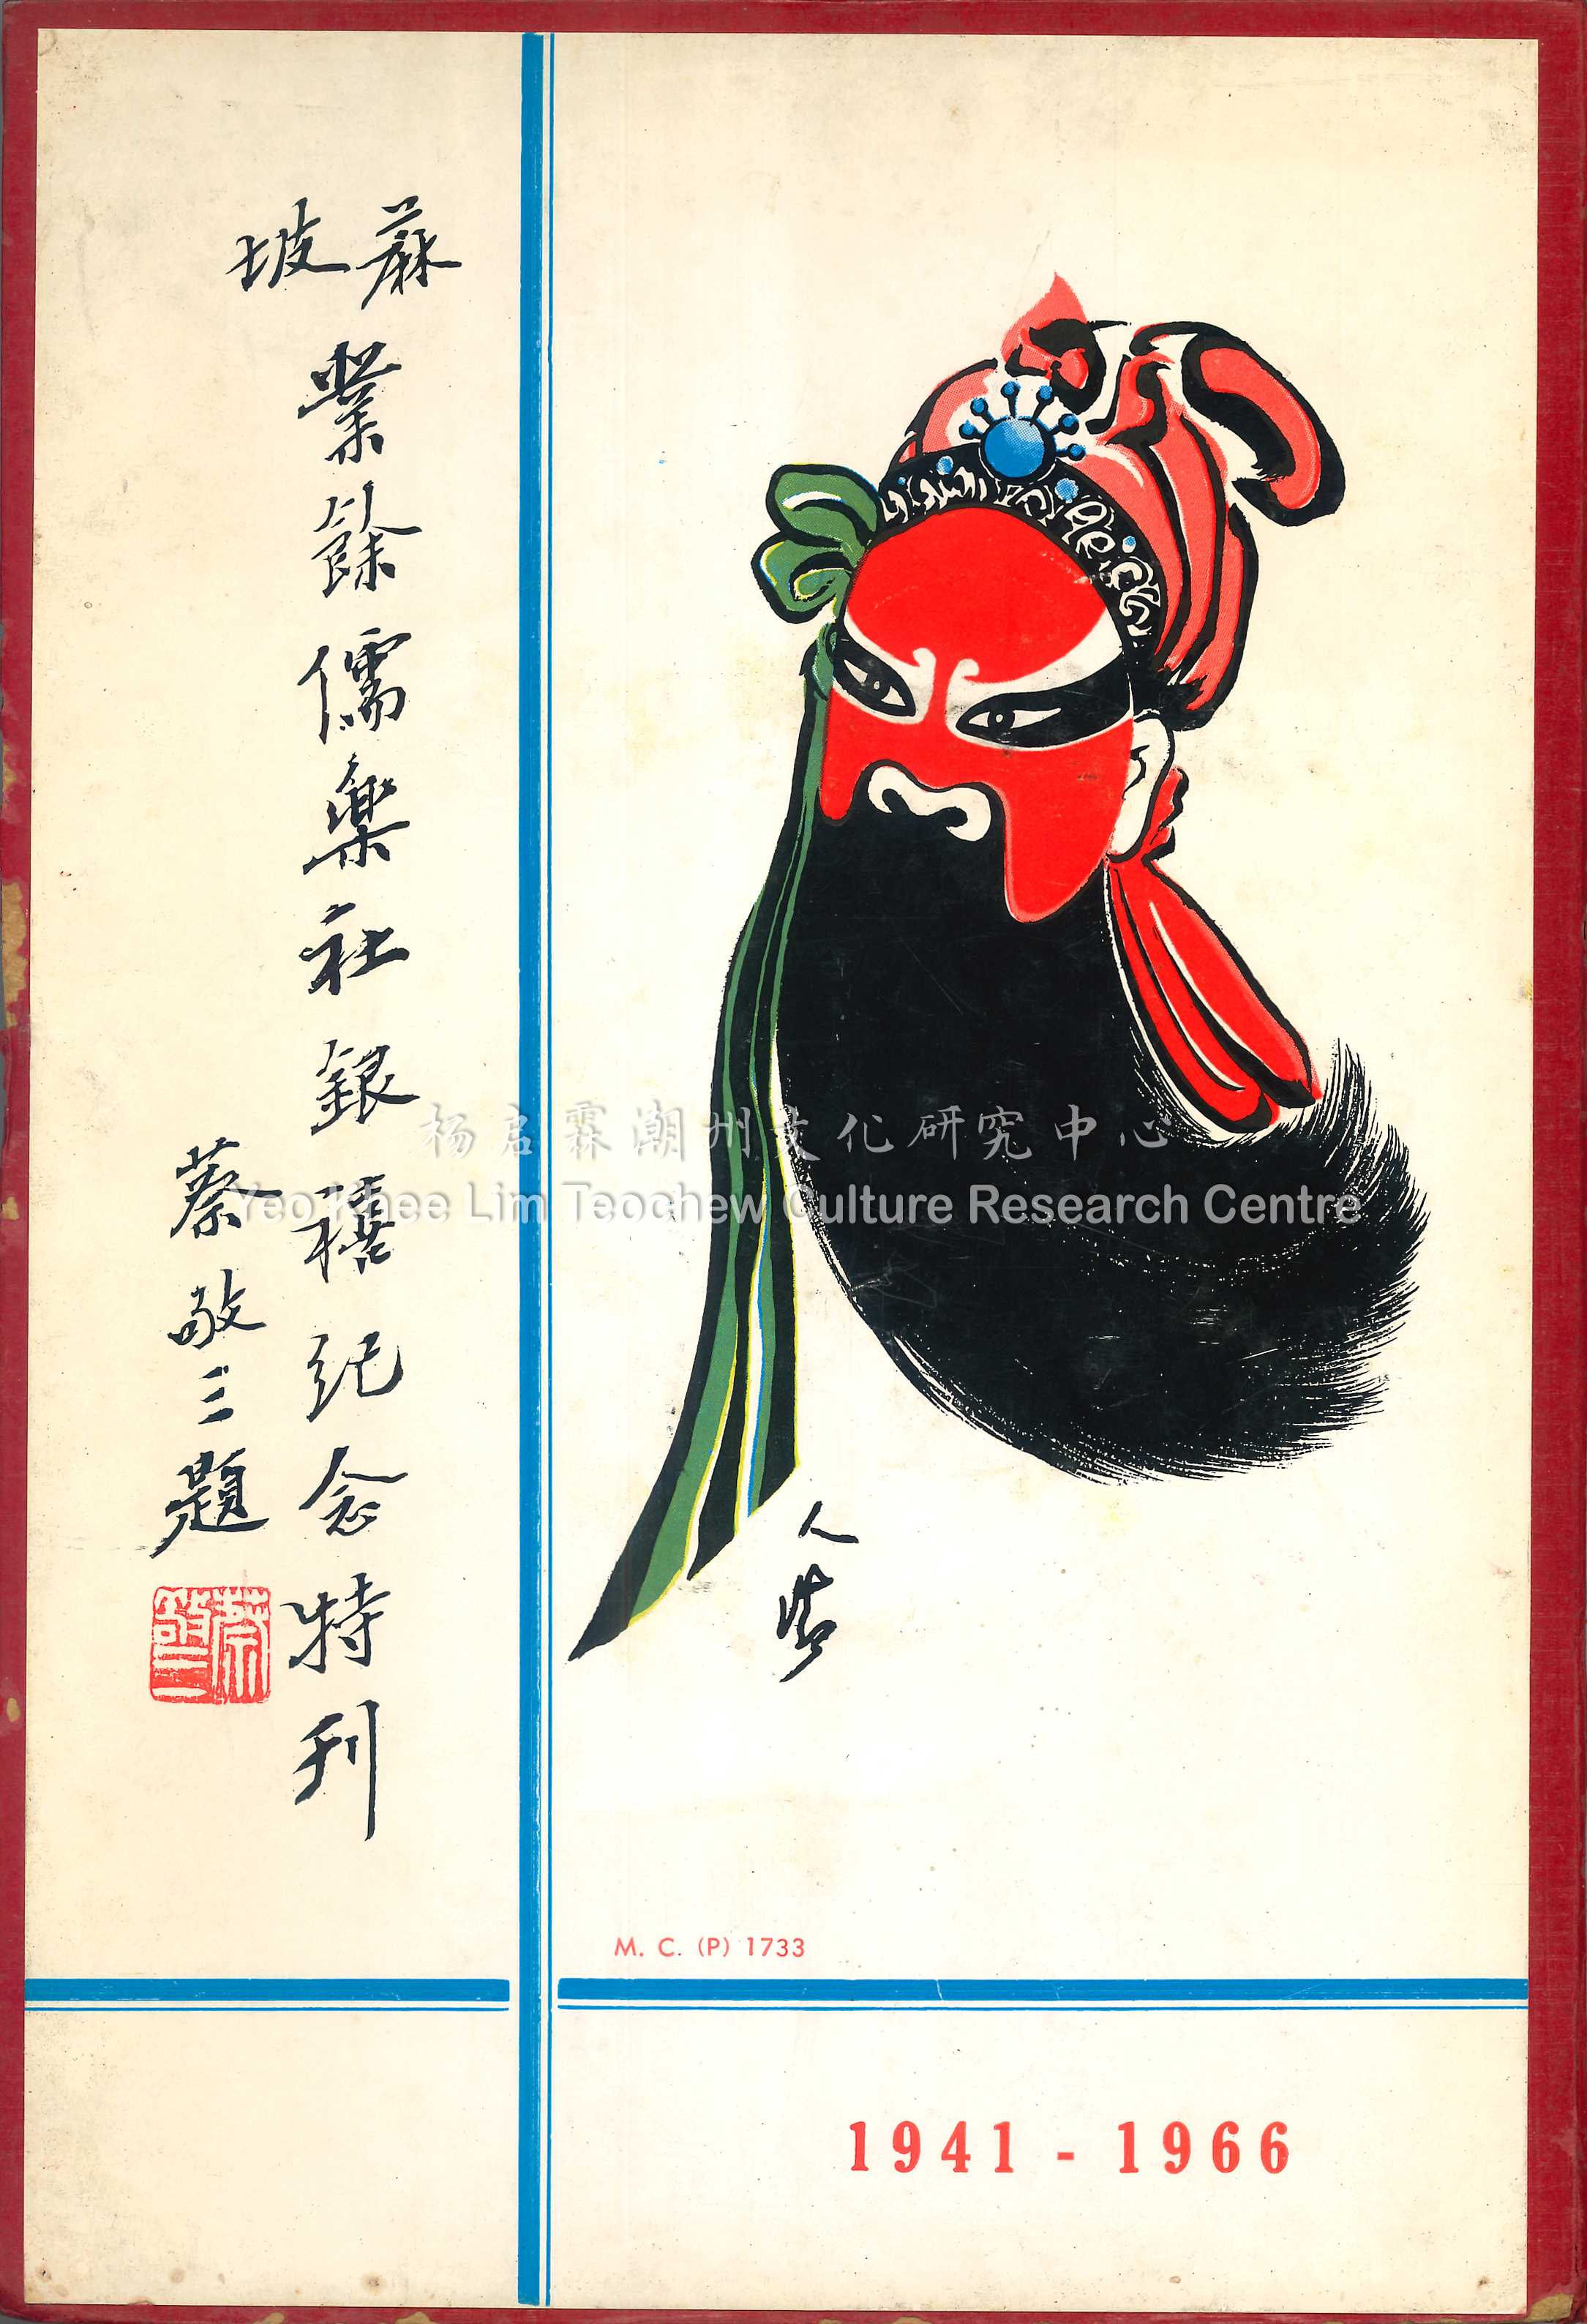 蔴坡
業餘儒樂社銀禧紀念特刊
蔡敬三題
蔡敬三
杨启霖潮州文化研究中心
Yeo Khee Lim Teochew Culture Research Centre
M. C. (P) 1733
1941 - 1966